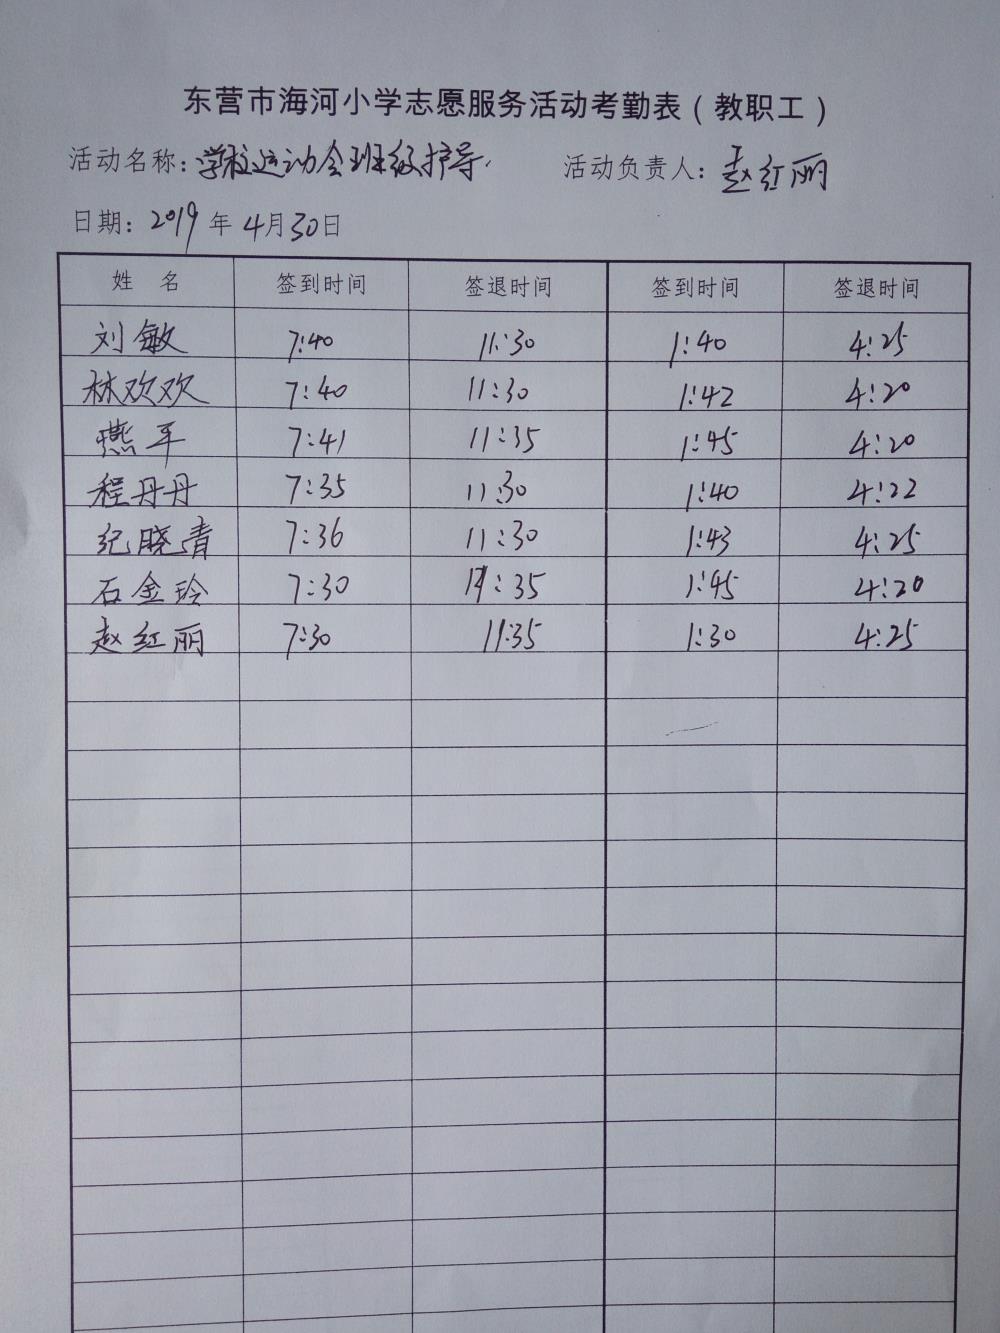 东营市海河小学志愿服务活动考勤表（教职工）
活动名称：学校运动会班级护导 活动负责人：赵红丽
日期：2019年4月30日
姓 名 签到时间 签退时间 签到时间 签退时间
刘敏 7:40 11:30 1:40 4:25
林欢欢 7:40 11:30 1:42 4:20
燕平 7:41 11:35 1:45 4:20
程丹丹 7:35 11:30 1:40 4:22
纪晓青 7:36 11:30 1:43 4:25
石金玲 7:30 11:35 1:45 4:20
赵红丽 7:30 11:35 1:30 4:25